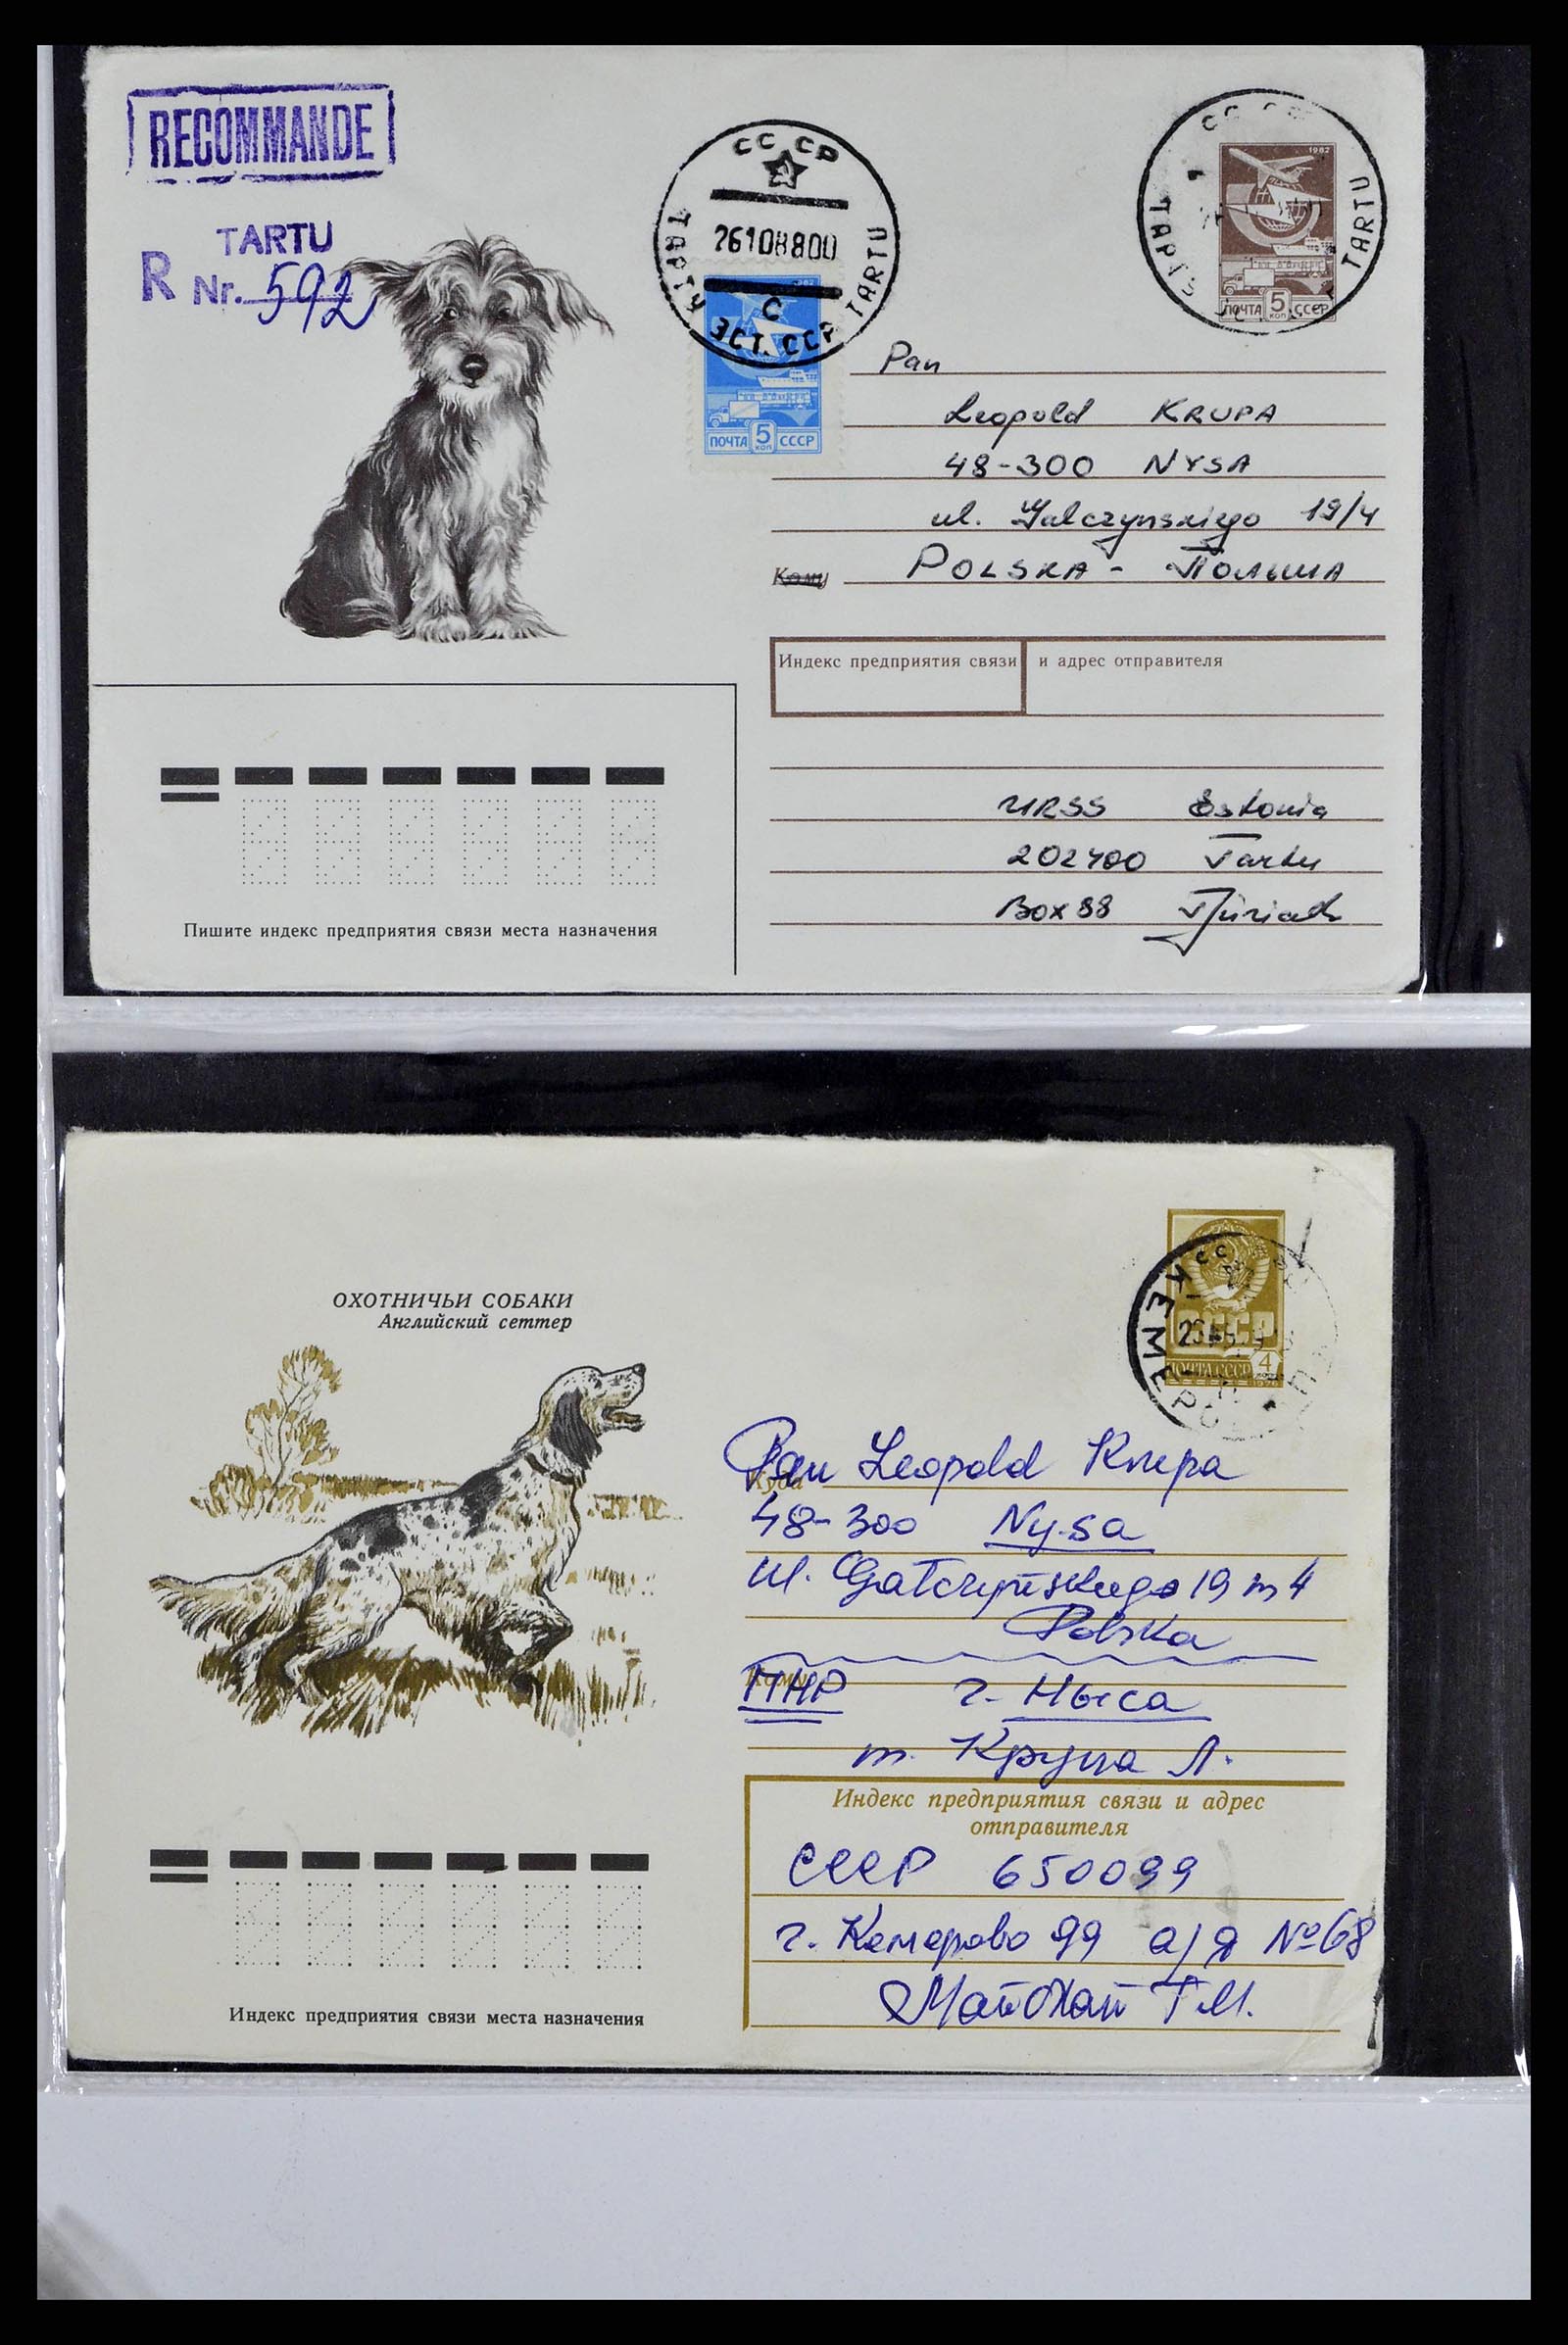 RECOMMANDE
TARTU
R Nr. 592
СССР
26108800
С
ТАРТУ ЭСТ. ССР TARTU
ПОЧТА 5 КОП СССР
СССР
1982
TARTU
ПОЧТА 5 КОП СССР
Pan
Leopold KRUPA
48-300 NYSA
ul. Galczynskiego 19/4
Кому
POLSKA - ПОЛЬША
Индекс предприятия связи и адрес отправителя
URSS Estonia
202400 Tartu
Box 88
Пишите индекс предприятия связи места назначения
ОХОТНИЧЬИ СОБАКИ
Английский сеттер
СССР
ПОЧТА СССР 4
КЕМЕРО
Куда
Pan Leopold Krupa
48-300 Nysa
ul. Gałczyńskiego 19 m 4
Polska
Кому
ПНР г. Ныса
т. Крупа Л.
Индекс предприятия связи и адрес
отправителя
СССР 650099
г. Кемерово 99 а/я №68
Индекс предприятия связи места назначения